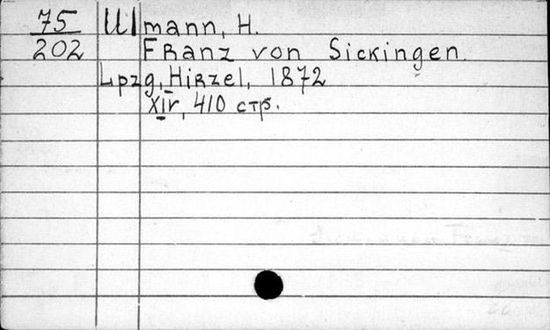 75 Ullmann, H.
202 Franz von Sickingen.
Lpzg, Hirzel, 1872
XIV, 410 стр.